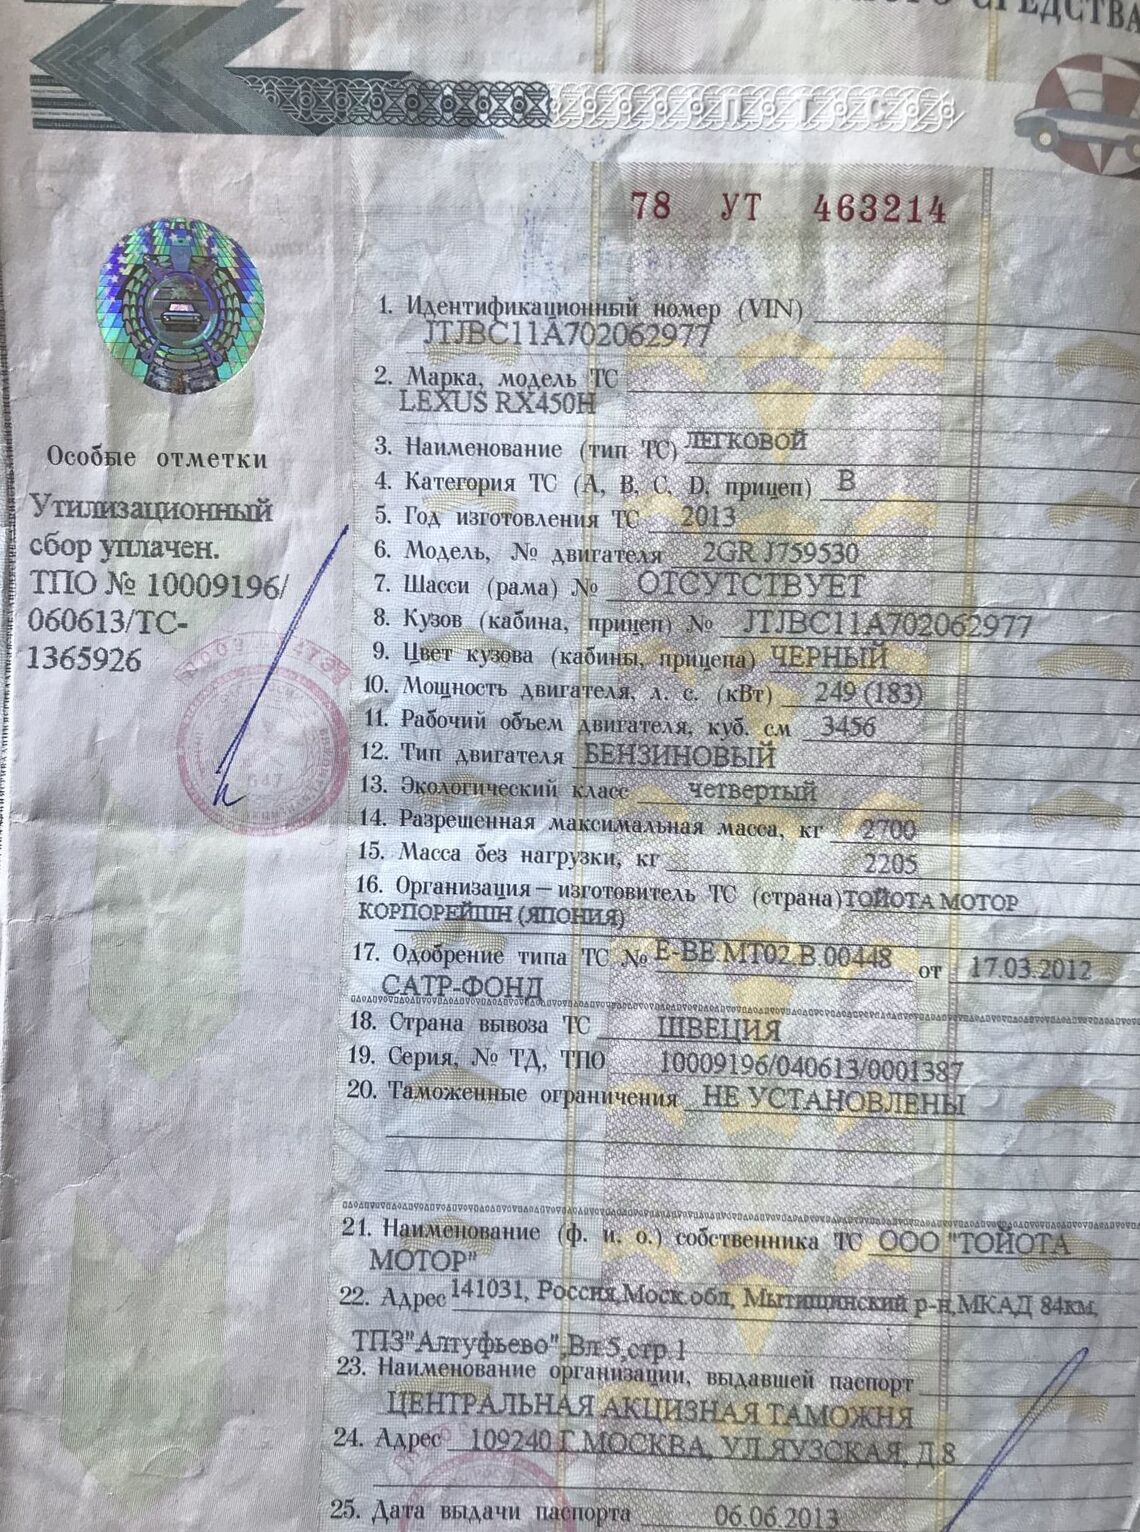 СРЕДСТВА
ПТС
78 УТ 463214
1. Идентификационный номер (VIN)
JTJBC11A702062977
2. Марка, модель ТС
LEXUS RX450H
3. Наименование (тип ТС) ЛЕГКОВОЙ
4. Категория ТС (A, B, C, D, прицеп) B
5. Год изготовления ТС 2013
6. Модель, № двигателя 2GR J759530
7. Шасси (рама) № ОТСУТСТВУЕТ
8. Кузов (кабина, прицеп) № JTJBC11A702062977
9. Цвет кузова (кабины, прицепа) ЧЕРНЫЙ
10. Мощность двигателя, л. с. (кВт) 249 (183)
11. Рабочий объем двигателя, куб. см 3456
12. Тип двигателя БЕНЗИНОВЫЙ
13. Экологический класс четвертый
14. Разрешенная максимальная масса, кг 2700
15. Масса без нагрузки, кг 2205
16. Организация – изготовитель ТС (страна) ТОЙОТА МОТОР
КОРПОРЕЙШН (ЯПОНИЯ)
17. Одобрение типа ТС № E-BE.MT02.B.00448 от 17.03.2012
САТР-ФОНД
18. Страна вывоза ТС ШВЕЦИЯ
19. Серия, № ТД, ТПО 10009196/040613/0001387
20. Таможенные ограничения НЕ УСТАНОВЛЕНЫ
21. Наименование (ф. и. о.) собственника ТС ООО "ТОЙОТА
МОТОР"
22. Адрес 141031, Россия,Моск.обл, Мытищинский р-н,МКАД 84км,
ТПЗ"Алтуфьево",Вл 5,стр.1
23. Наименование организации, выдавшей паспорт
ЦЕНТРАЛЬНАЯ АКЦИЗНАЯ ТАМОЖНЯ
24. Адрес 109240 Г.МОСКВА, УЛ.ЯУЗСКАЯ, Д.8
25. Дата выдачи паспорта 06.06.2013
Особые отметки
Утилизационный
сбор уплачен.
ТПО № 10009196/
060613/ТС-
1365926